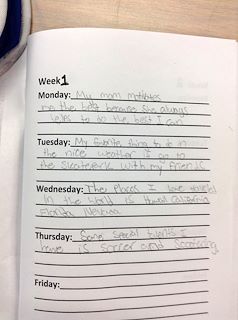 Week 1
Monday: My mom motivates
me the best because she always
tells me to do the best I can
Tuesday: My favorite thing to do in
the nice weather is go to
the skatepark with my friends
Wednesday: The places I have traveled
in the world is Hawaii California
Florida Nevada
Thursday: Some special talents I
have is soccer and scootering
Friday: